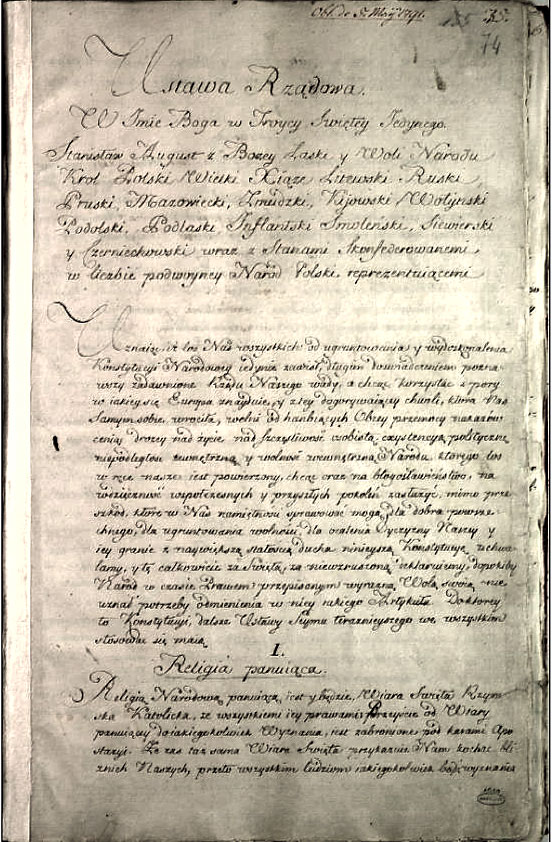 Obl. de 5. Maij 1791.
135
35.
74
Ustawa Rządowa.
W Imie Boga w Troycy Swiętey Jedynego.
Stanisław August z Bozey Łaski y Woli Narodu
Krol Polski Wielki Xiąze Litewski Ruski
Pruski, Mazowiecki, Zmudzki, Kijowski Wołynski
Podolski, Podlaski Inflantski Smoleński, Siewierski
y Czerniechowski wraz z Stanami Skonfederowanemi
w liczbie podwoyney Naród Polski reprezentuiącemi
Uznaiąc, iż los Nas wszystkich od ugruntowania y wydoskonalenia
Konstytucyi Narodowey iedynie zawisł, długim doswiadczeniem pozna-
wszy zadawnione Rządu Naszego wady, a chcąc korzystać z pory
w iakiey się Europa znayduie, y z tey dogorywaiącey chwili, ktora Nas
samym sobie wrociła, wolni od hanbiących Obcey przemocy nakazów
ceniąc drozey nad zycie, nad szczęśliwość osobistą, exystencyą polityczną
niepodległosc zewnętrzną y wolność wewnętrzną Narodu, ktorego los
w ręce nasze iest powierzony, chcąc oraz na błogosławieństwo, na
wdzięczność wspołczesnych y przyszłych pokoleń zasłuzyc, mimo prze-
szkód, które w Nas namiętności sprawować mogą, dla dobra powsze-
chnego, dla ugruntowania wolności, dla ocalenia Oyczyzny Naszey y
iey granic z naywiększą stałością ducha ninieyszą Konstytucyę uchwa-
lamy, y tę całkowicie za Swiętą, za niewzruszoną deklaruiemy, dopokiby
Narod w czasie Prawem przepisanym wyrazną Wolą swoią nie
uznał potrzeby odmienienia w niey iakiego Artykułu. Do ktorey
to Konstytucyi, dalsze Ustawy Seymu teraznieyszego we wszystkim
stosować się maią.
I.
Religia panuiąca.
Religią Narodową panuiącą, iest y będzie Wiara Swięta Rzym-
ska Katolicka, ze wszystkiemi iey prawami. Przeyście od Wiary
panuiącey do iakiegokolwiek Wyznania, iest zabronione pod karami Apo-
stazyi. Ze zas taz sama Wiara Swięta przykazuie Nam kochac bli-
znich Naszych, przeto wszystkim ludziom iakiegokolwiek bądz wyznania